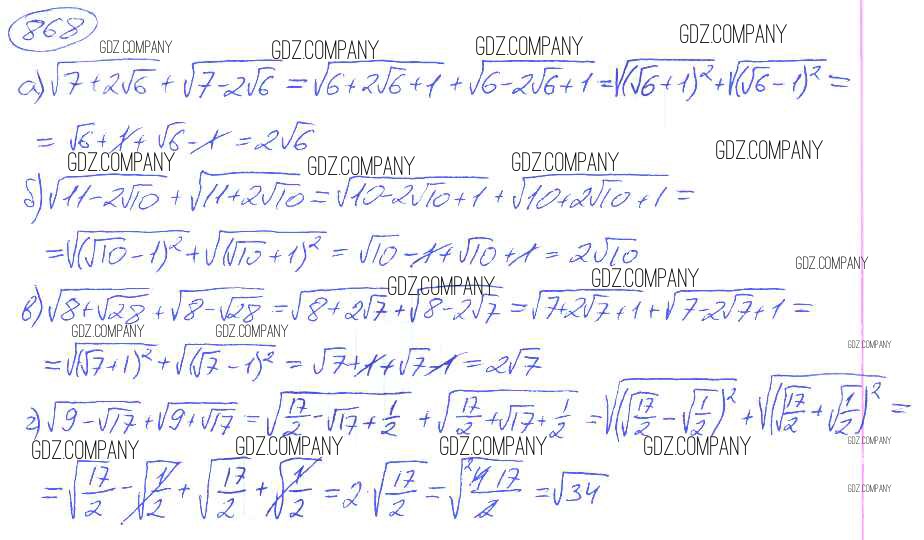 868
GDZ.COMPANY GDZ.COMPANY GDZ.COMPANY GDZ.COMPANY
а) √(7+2√6) + √(7-2√6) = √(6+2√6+1) + √(6-2√6+1) = √((√6+1)²) + √((√6-1)²) =
= √6+1+√6-1 = 2√6
GDZ.COMPANY GDZ.COMPANY GDZ.COMPANY GDZ.COMPANY
б) √(11-2√10) + √(11+2√10) = √(10-2√10+1) + √(10+2√10+1) =
= √((√10-1)²) + √((√10+1)²) = √10-1+√10+1 = 2√10
GDZ.COMPANY GDZ.COMPANY GDZ.COMPANY
в) √(8+√28) + √(8-√28) = √(8+2√7) + √(8-2√7) = √(7+2√7+1) + √(7-2√7+1) =
GDZ.COMPANY GDZ.COMPANY GDZ.COMPANY
= √((√7+1)²) + √((√7-1)²) = √7+1+√7-1 = 2√7
г) √(9-√17) + √(9+√17) = √(17/2-√17+1/2) + √(17/2+√17+1/2) = √((√(17/2)-√(1/2))²) + √((√(17/2)+√(1/2))²) =
GDZ.COMPANY GDZ.COMPANY GDZ.COMPANY GDZ.COMPANY GDZ.COMPANY
= √(17/2) - √(1/2) + √(17/2) + √(1/2) = 2·√(17/2) = √(4·17/2) = √34
GDZ.COMPANY